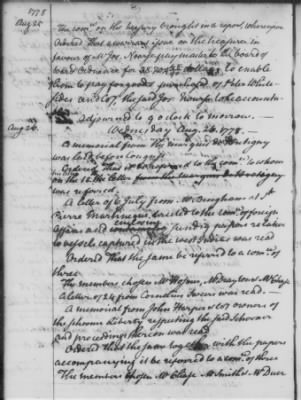 1778
Aug. 25
The comee. on the treasury brought in a report whereupon
Ordered That a warrant issue on the treasurer in
favour of Mr Jos. Nourse paymaster to the board of
war & Ordnance for dollars to enable
him to pay for goods purchased of Peter White-
sides and Co; the said Jos Nourse to be accountable
Adjourned to 9 o Clock to morrow.
Aug 26.
Wednesday Aug. 26. 1778.
A memorial from the marquis de Britigny
was laid before Congress
Ordered That it be referred to the comee. to whom
on the 12 the letter from the marquis de Britigny
was referred
A letter of July from W Bingham at St
Pierre Martinique directed to the comee of foreign
Affairs and enclosing sundry papers relative
to vessels captured in the west Indies was read
Ordered That the same be referred to a comee of
three
The members chosen Mr Hosmer, Mr Drayton & Mr Chase
A letter of 24 from Cornelius Sweers was read.
A memorial from John Harper & Co owners of
the schooner Liberty respecting the said Schooner
and proceedings thereon was read
Ordered That the same together with the papers
accompanying it be referred to a comee. of three
The members chosen Mr Chase Mr Smith & Mr Duer